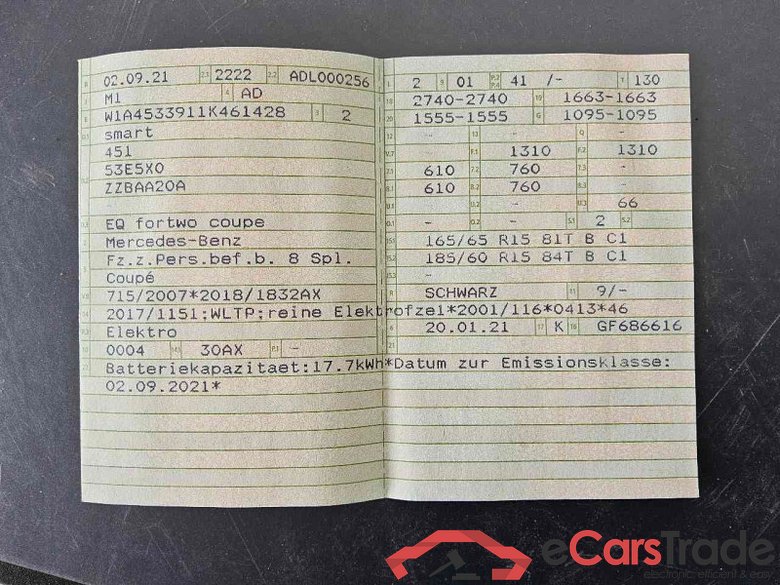 02.09.21 2222 ADL000256
M1 AD
W1A4533911K461428 2
smart
451
53E5X0
ZZBAA20A
-
EQ fortwo coupe
Mercedes-Benz
Fz.z.Pers.bef.b. 8 Spl.
Coupé
715/2007*2018/1832AX
2017/1151;WLTP;reine Elektrofze1*2001/116*0413*46
Elektro
0004 30AX -
Batteriekapazitaet:17.7kWh*Datum zur Emissionsklasse:
02.09.2021*
2 01 41 /- 130
2740-2740 1663-1663
1555-1555 1095-1095
- - -
- 1310 1310
610 760 -
610 760 -
- - 66
- - 2
165/65 R15 81T B C1
185/60 R15 84T B C1
-
SCHWARZ 9/-
20.01.21 K GF686616
eCarsTrade
electronic, efficient & easy